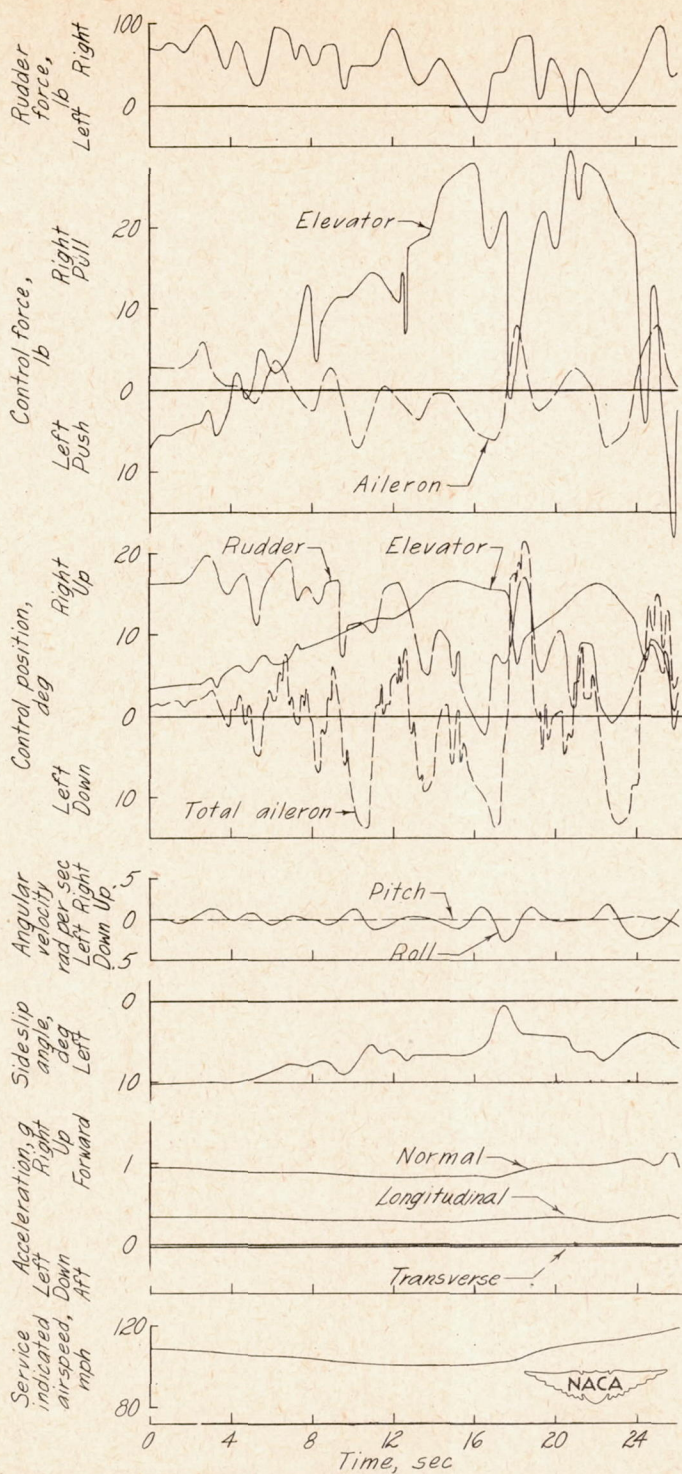 Rudder
force,
lb
Left Right
100
0
Control force,
lb
Right
Pull
Left
Push
20
10
0
10
Elevator
Aileron
Control position,
deg
Right
Up
Left
Down
20
10
0
10
Rudder
Elevator
Total aileron
Angular
velocity
rad per sec
Left Right
Down Up
.5
0
.5
Pitch
Roll
Sideslip
angle,
deg
Left
0
10
Acceleration, g
Left Right
Down Up
Aft Forward
1
0
Normal
Longitudinal
Transverse
Service
indicated
airspeed,
mph
120
80
NACA
0 4 8 12 16 20 24
Time, sec